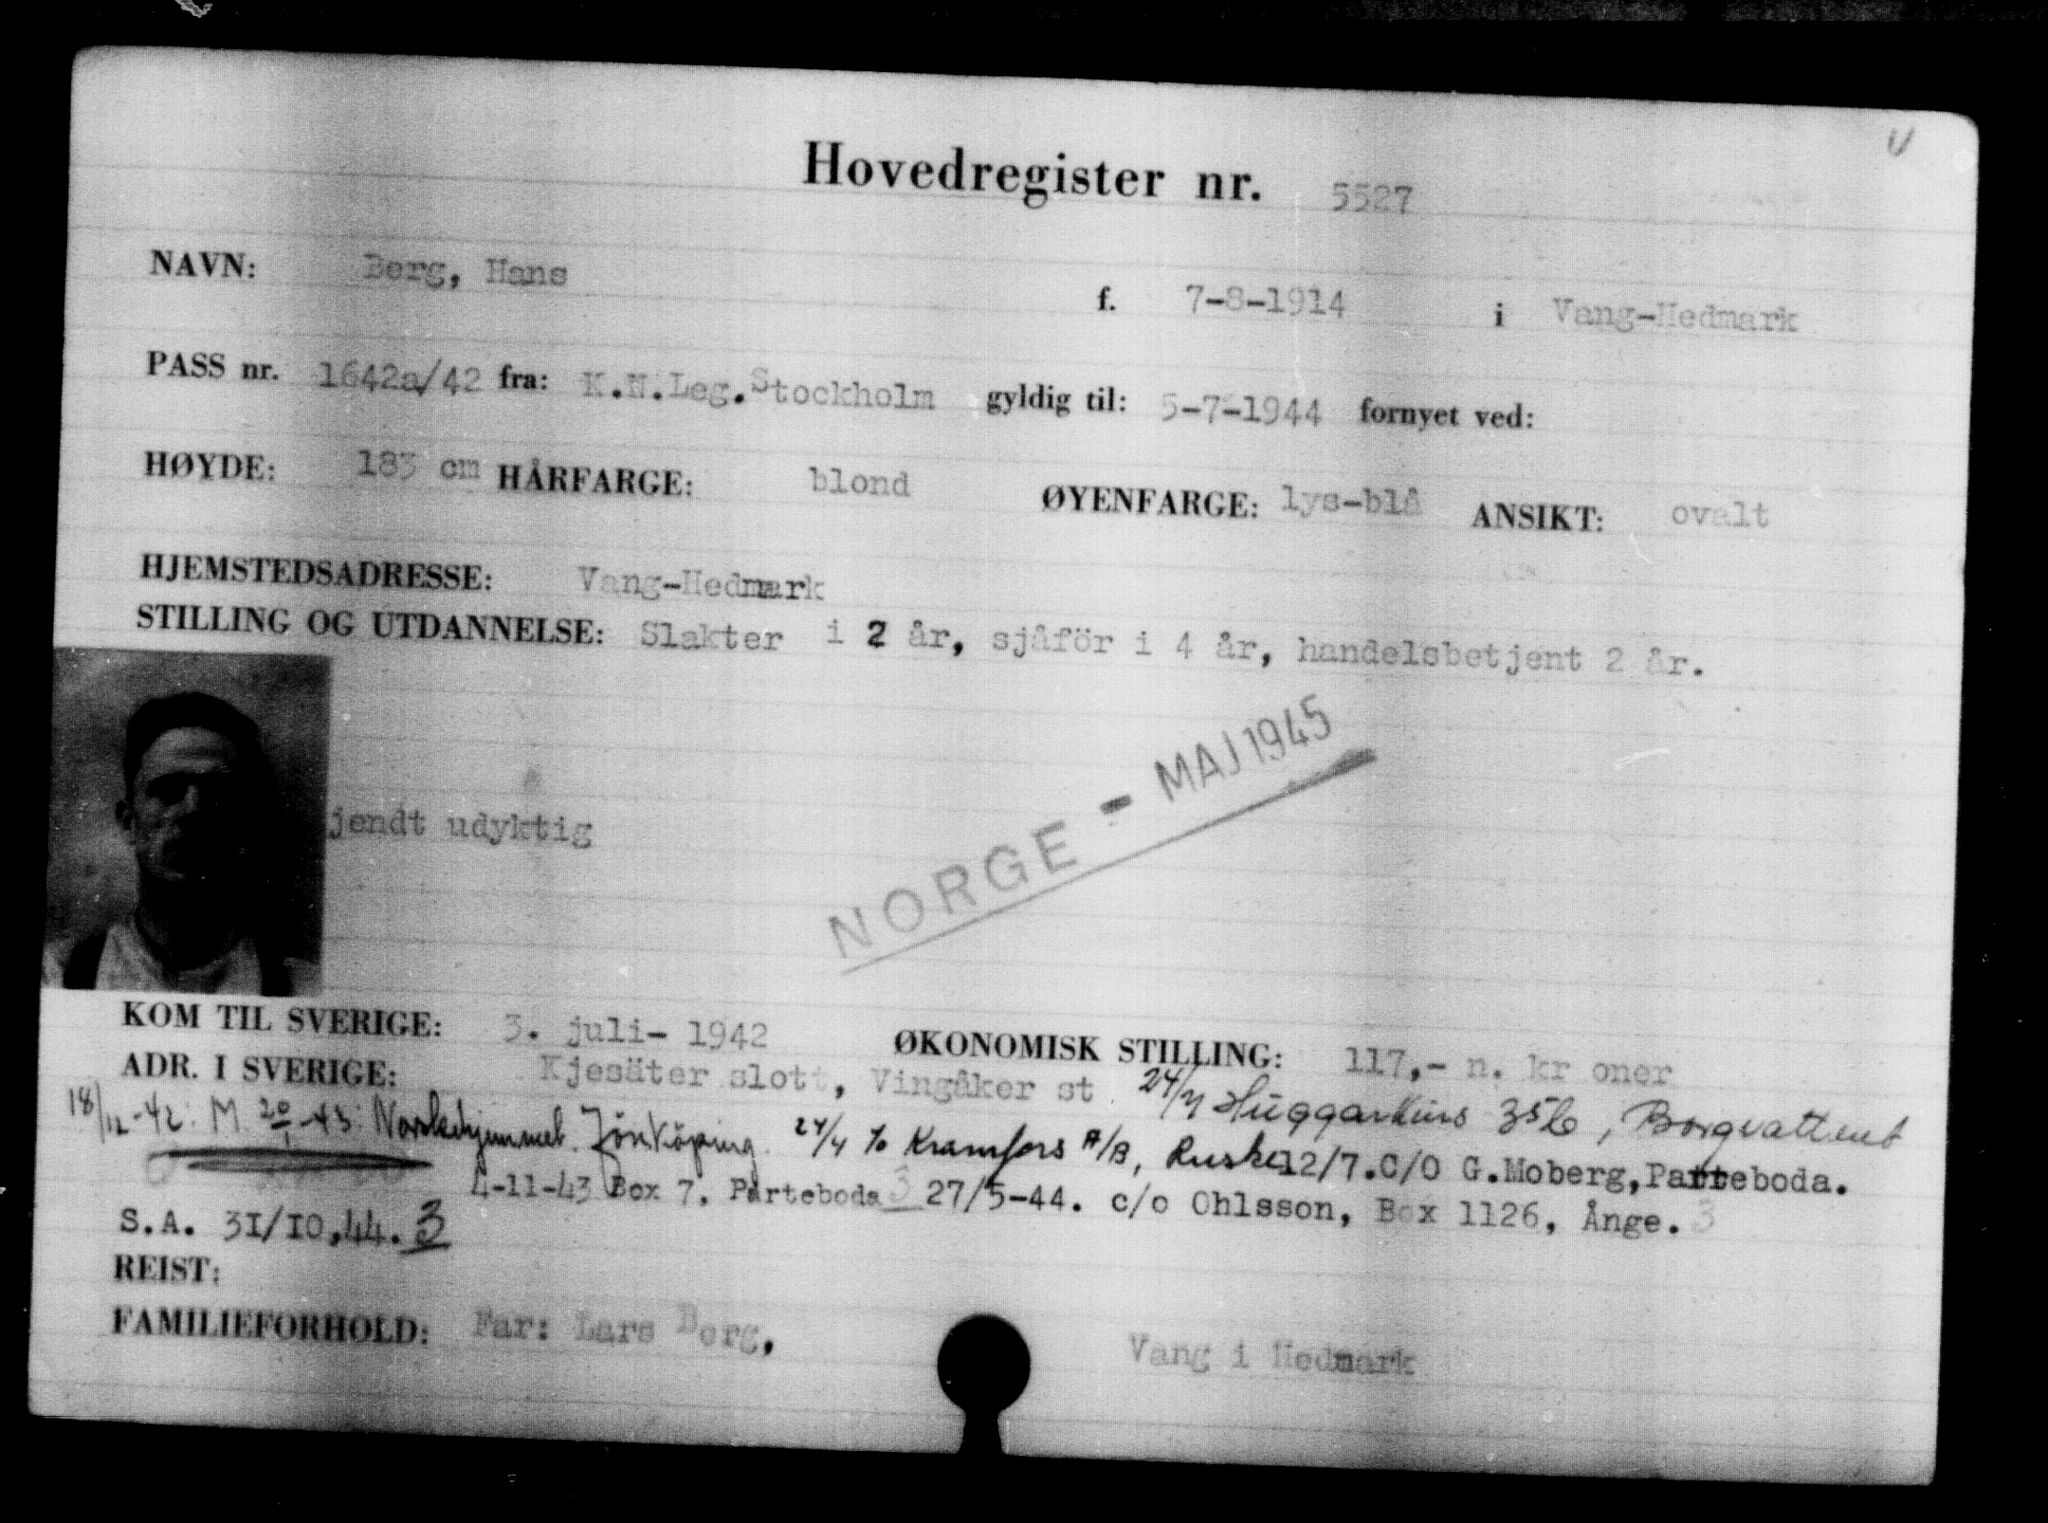 Hovedregister nr. 5527
NAVN: Berg, Hans f. 7-8-1914 i Vang-Hedmark
PASS nr. 1642a/42 fra: K.N.Leg.Stockholm gyldig til: 5-7-1944 fornyet ved:
HØYDE: 183 cm HÅRFARGE: blond ØYENFARGE: lys-blå ANSIKT: ovalt
HJEMSTEDSADRESSE: Vang-Hedmark
STILLING OG UTDANNELSE: Slakter i 2 år, sjåför i 4 år, handelsbetjent 2 år.
NORGE - MAJ 1945
jendt udyktig
KOM TIL SVERIGE: 3. juli- 1942 ØKONOMISK STILLING: 117,- n. kr oner
ADR. I SVERIGE: Kjesäter slott, Vingåker st. 24/11 Huggarkurs 356, Borgvattent
18/12-42: M. 20/1-43: Norskehjemmet. Jönköping. 24/4 % Kramfors A/B, Ruske 12/7.C/O G.Moberg, Parteboda.
4-11-43 Box 7. Parteboda 3 27/5-44. c/o Ohlsson, Box 1126, Ånge. 3
S.A. 31/10,44. 3
REIST:
FAMILIEFORHOLD: Far: Lars Berg, Vang i Hedmark